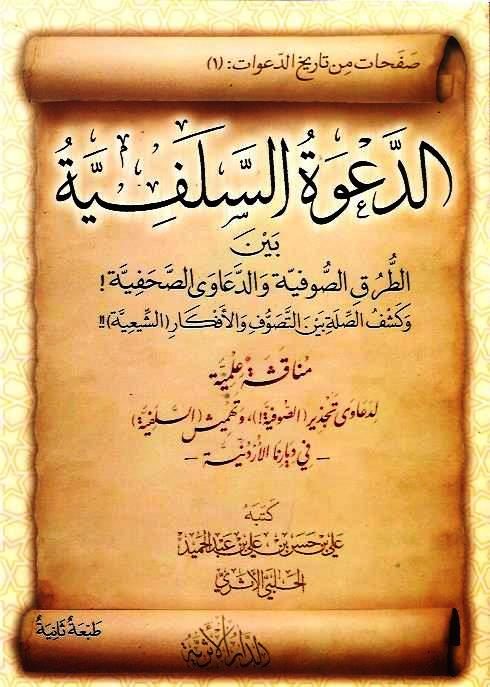 صَفَحَات مِن تاريخ الدّعوات: (١)
الدَّعْوَةُ السَّلَفِيَّةُ
بَيْنَ
الطُّرُقِ الصُّوفِيّة وَالدَّعَاوَى الصَّحَفِيَّة !
وَكَشْفُ الصِّلَةِ بَيْنَ التَّصَوُّفِ وَالأَفْكَارِ (الشِّيعِيَّة)!!
مُنَاقَشَةٌ عِلْمِيَّة
لِدَعَاوَى تَجْذِيرِ (الصُّوفِيَّة!)، وَتَهْمِيشِ (السَّلَفِيَّة)
- فِي دِيَارِنَا الأُرْدُنِيَّة -
كَتَبَهُ
عَلِيّ بن حَسَن بن عَلِيّ بن عَبْد الحَمِيْد
الحَلَبِيّ الأَثَرِيّ
طَبْعَةٌ ثَانِيَةٌ
الدَّارُ الأَثَرِيَّة